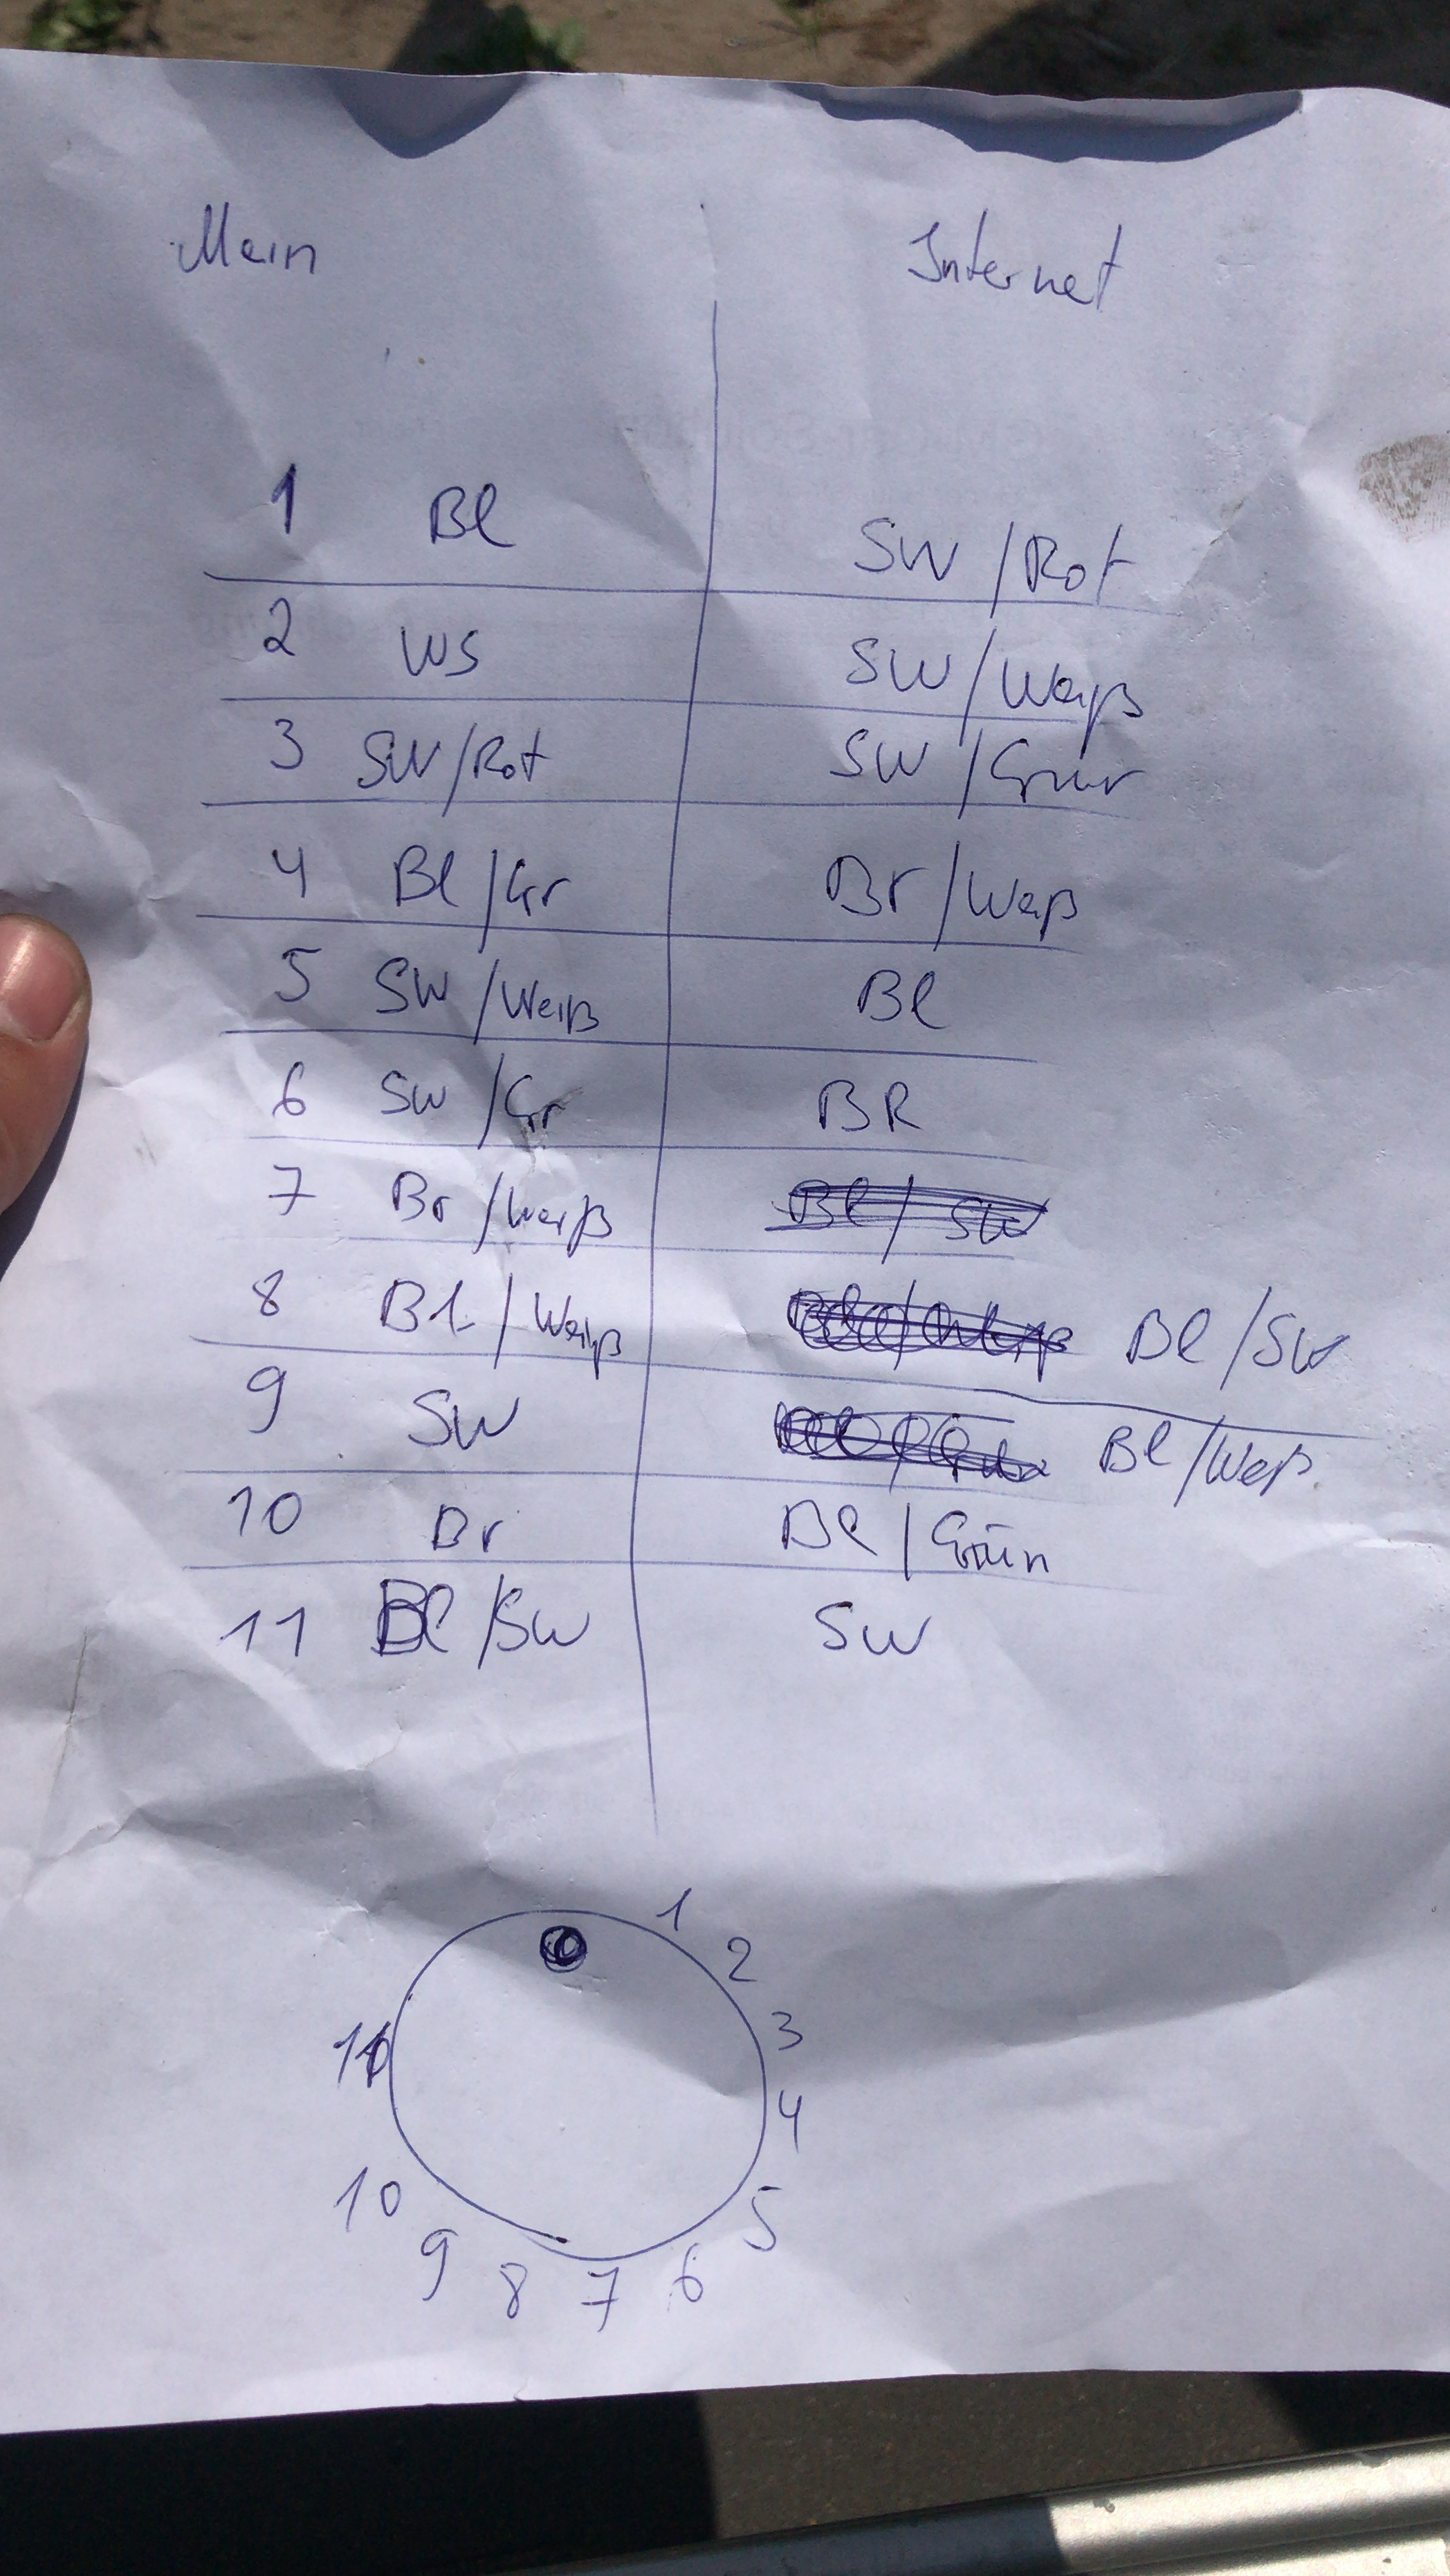 Mein Internet
1 Bl SW/Rot
2 WS SW/Weiß
3 SW/Rot SW/Grün
4 Bl/Gr Br/Weiß
5 SW/Weiß Bl
6 SW/Gr BR
7 Br/Weiß Bl/SW
8 BL/Weiß Bl/SW
9 SW Bl/Weß
10 Br Bl/Grün
11 Bl/SW SW
1
2
3
4
5
6
7
8
9
10
11